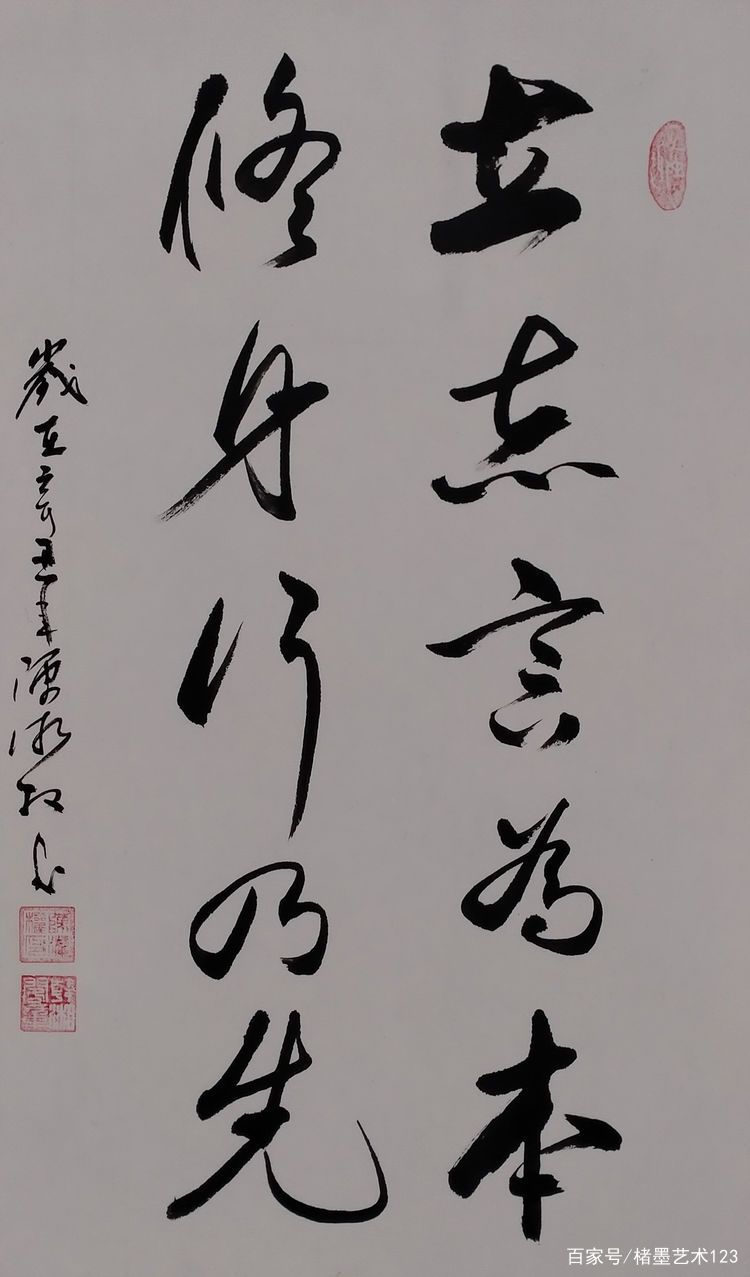 立志言為本
修身行乃先
歲在辛丑年陳
百家号/楮墨艺术123